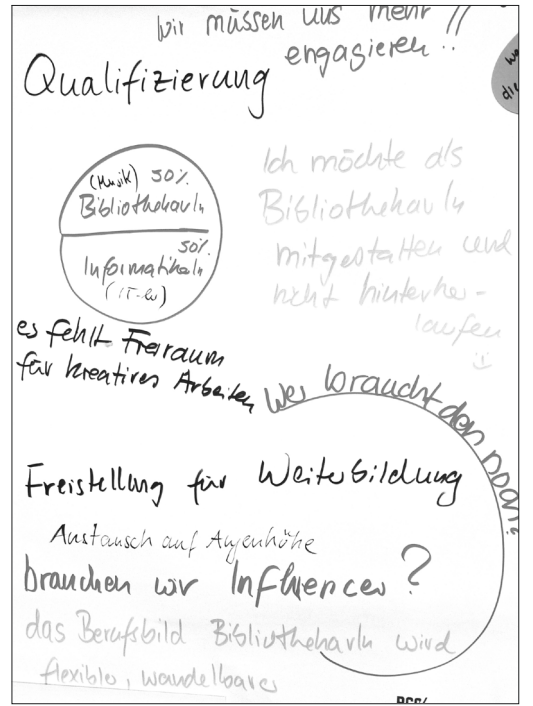 wir müssen uns mehr
engagieren !!
Qualifizierung
(Musik) 50%
BibliothekarIn
50%
InformatikerIn
Ich möchte als
BibliothekarIn
mitgestalten und
nicht hinterher-
laufen
es fehlt Freiraum
für kreatives Arbeiten
Wer braucht den noch?
Freistellung für Weiterbildung
Austausch auf Augenhöhe
brauchen wir Influencer?
das Berufsbild BibliothekarIn wird
flexibler, wandelbarer